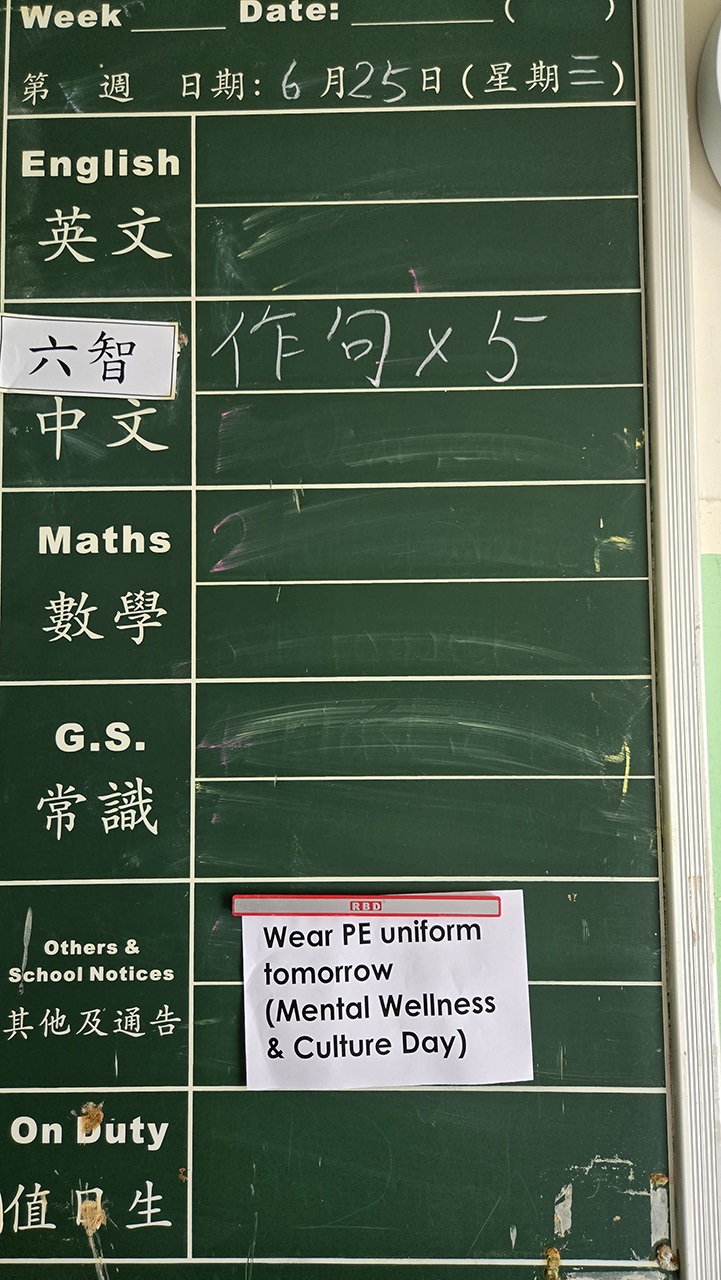 Week ____ Date: ________ ( )
第 週 日期: 6月25日(星期三)
English
英文
六智
作句 x 5
中文
Maths
數學
G.S.
常識
RBD
Others &
School Notices
其他及通告
Wear PE uniform
tomorrow
(Mental Wellness
& Culture Day)
On Duty
值日生